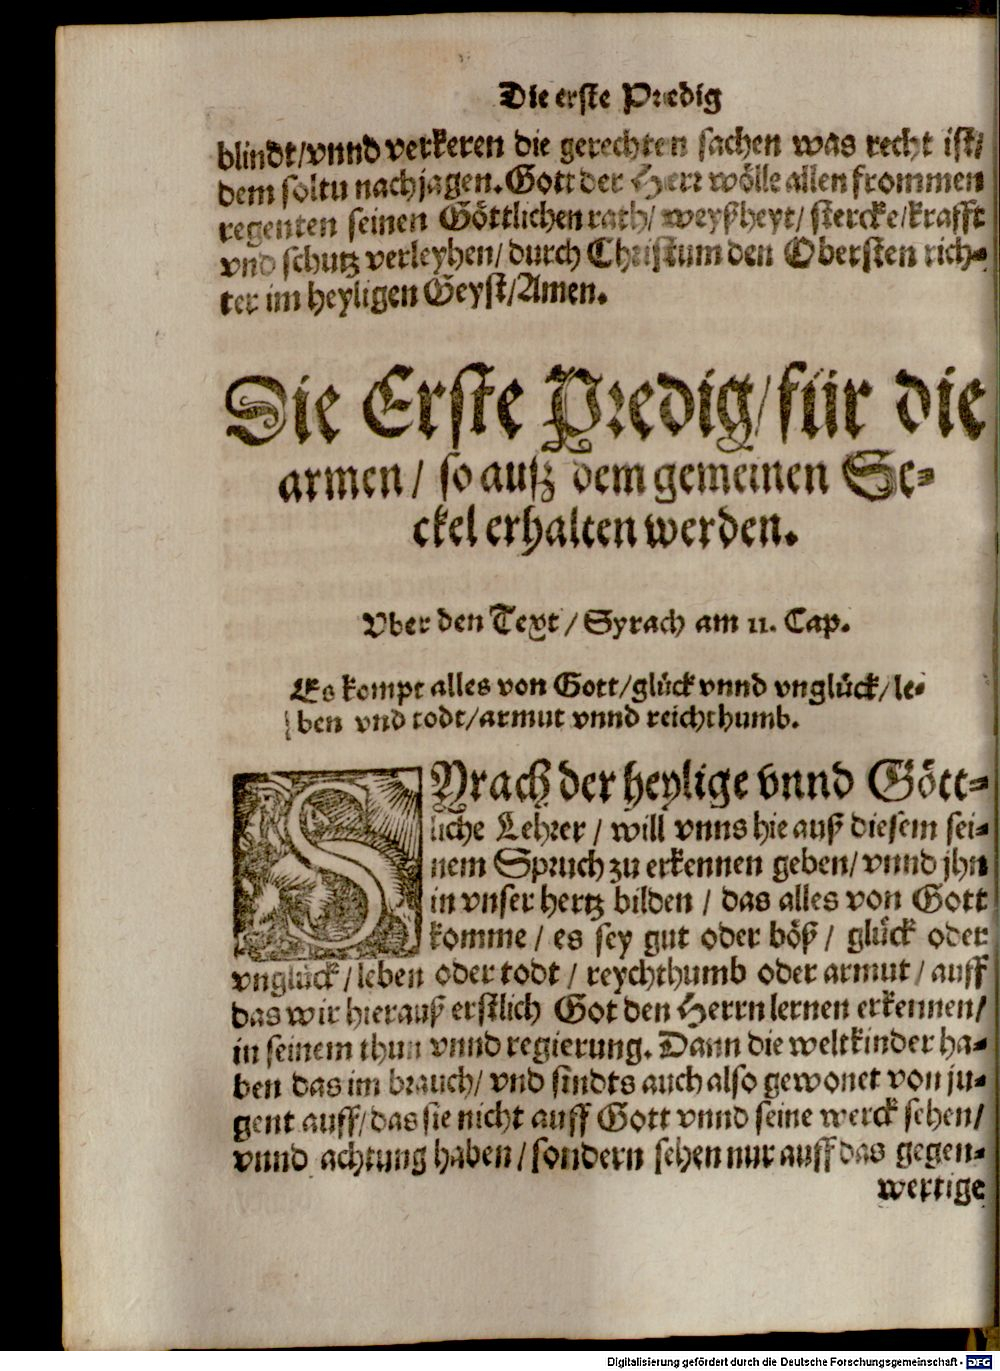 Die erste Predig
blindt/vnnd verkeren die gerechten sachen was recht ist/
dem soltu nachjagen. Gott der Herr wölle allen frommen
regenten seinen Göttlichen rath/ weyßheyt/ stercke/krafft
vnd schutz verleyhen/ durch Christum den Obersten rich-
ter im heyligen Geyst/Amen.
Die Erste Predig/für die
armen/ so auß dem gemeinen Se-
ckel erhalten werden.
Vber den Text/ Syrach am 11. Cap.
Es kompt alles von Gott/glück vnnd vnglück/ le-
ben vnd todt/armut vnnd reichthumb.
SYrach der heylige vnnd Gött-
liche Lehrer/ will vnns hie auß diesem sei-
nem Spruch zu erkennen geben/ vnnd jhn
in vnser hertz bilden/ das alles von Gott
komme/ es sey gut oder böß/ glück oder
vnglück/leben oder todt/ reychthumb oder armut/ auff
das wir hierauß erstlich Got den Herrn lernen erkennen/
in seinem thun vnnd regierung. Dann die weltkinder ha-
ben das im brauch/ vnd sindts auch also gewonet von ju-
gent auff/das sie nicht auff Gott vnnd seine werck sehen/
vnnd achtung haben/sondern sehen nur auff das gegen-
wertige
Digitalisierung gefördert durch die Deutsche Forschungsgemeinschaft - DFG